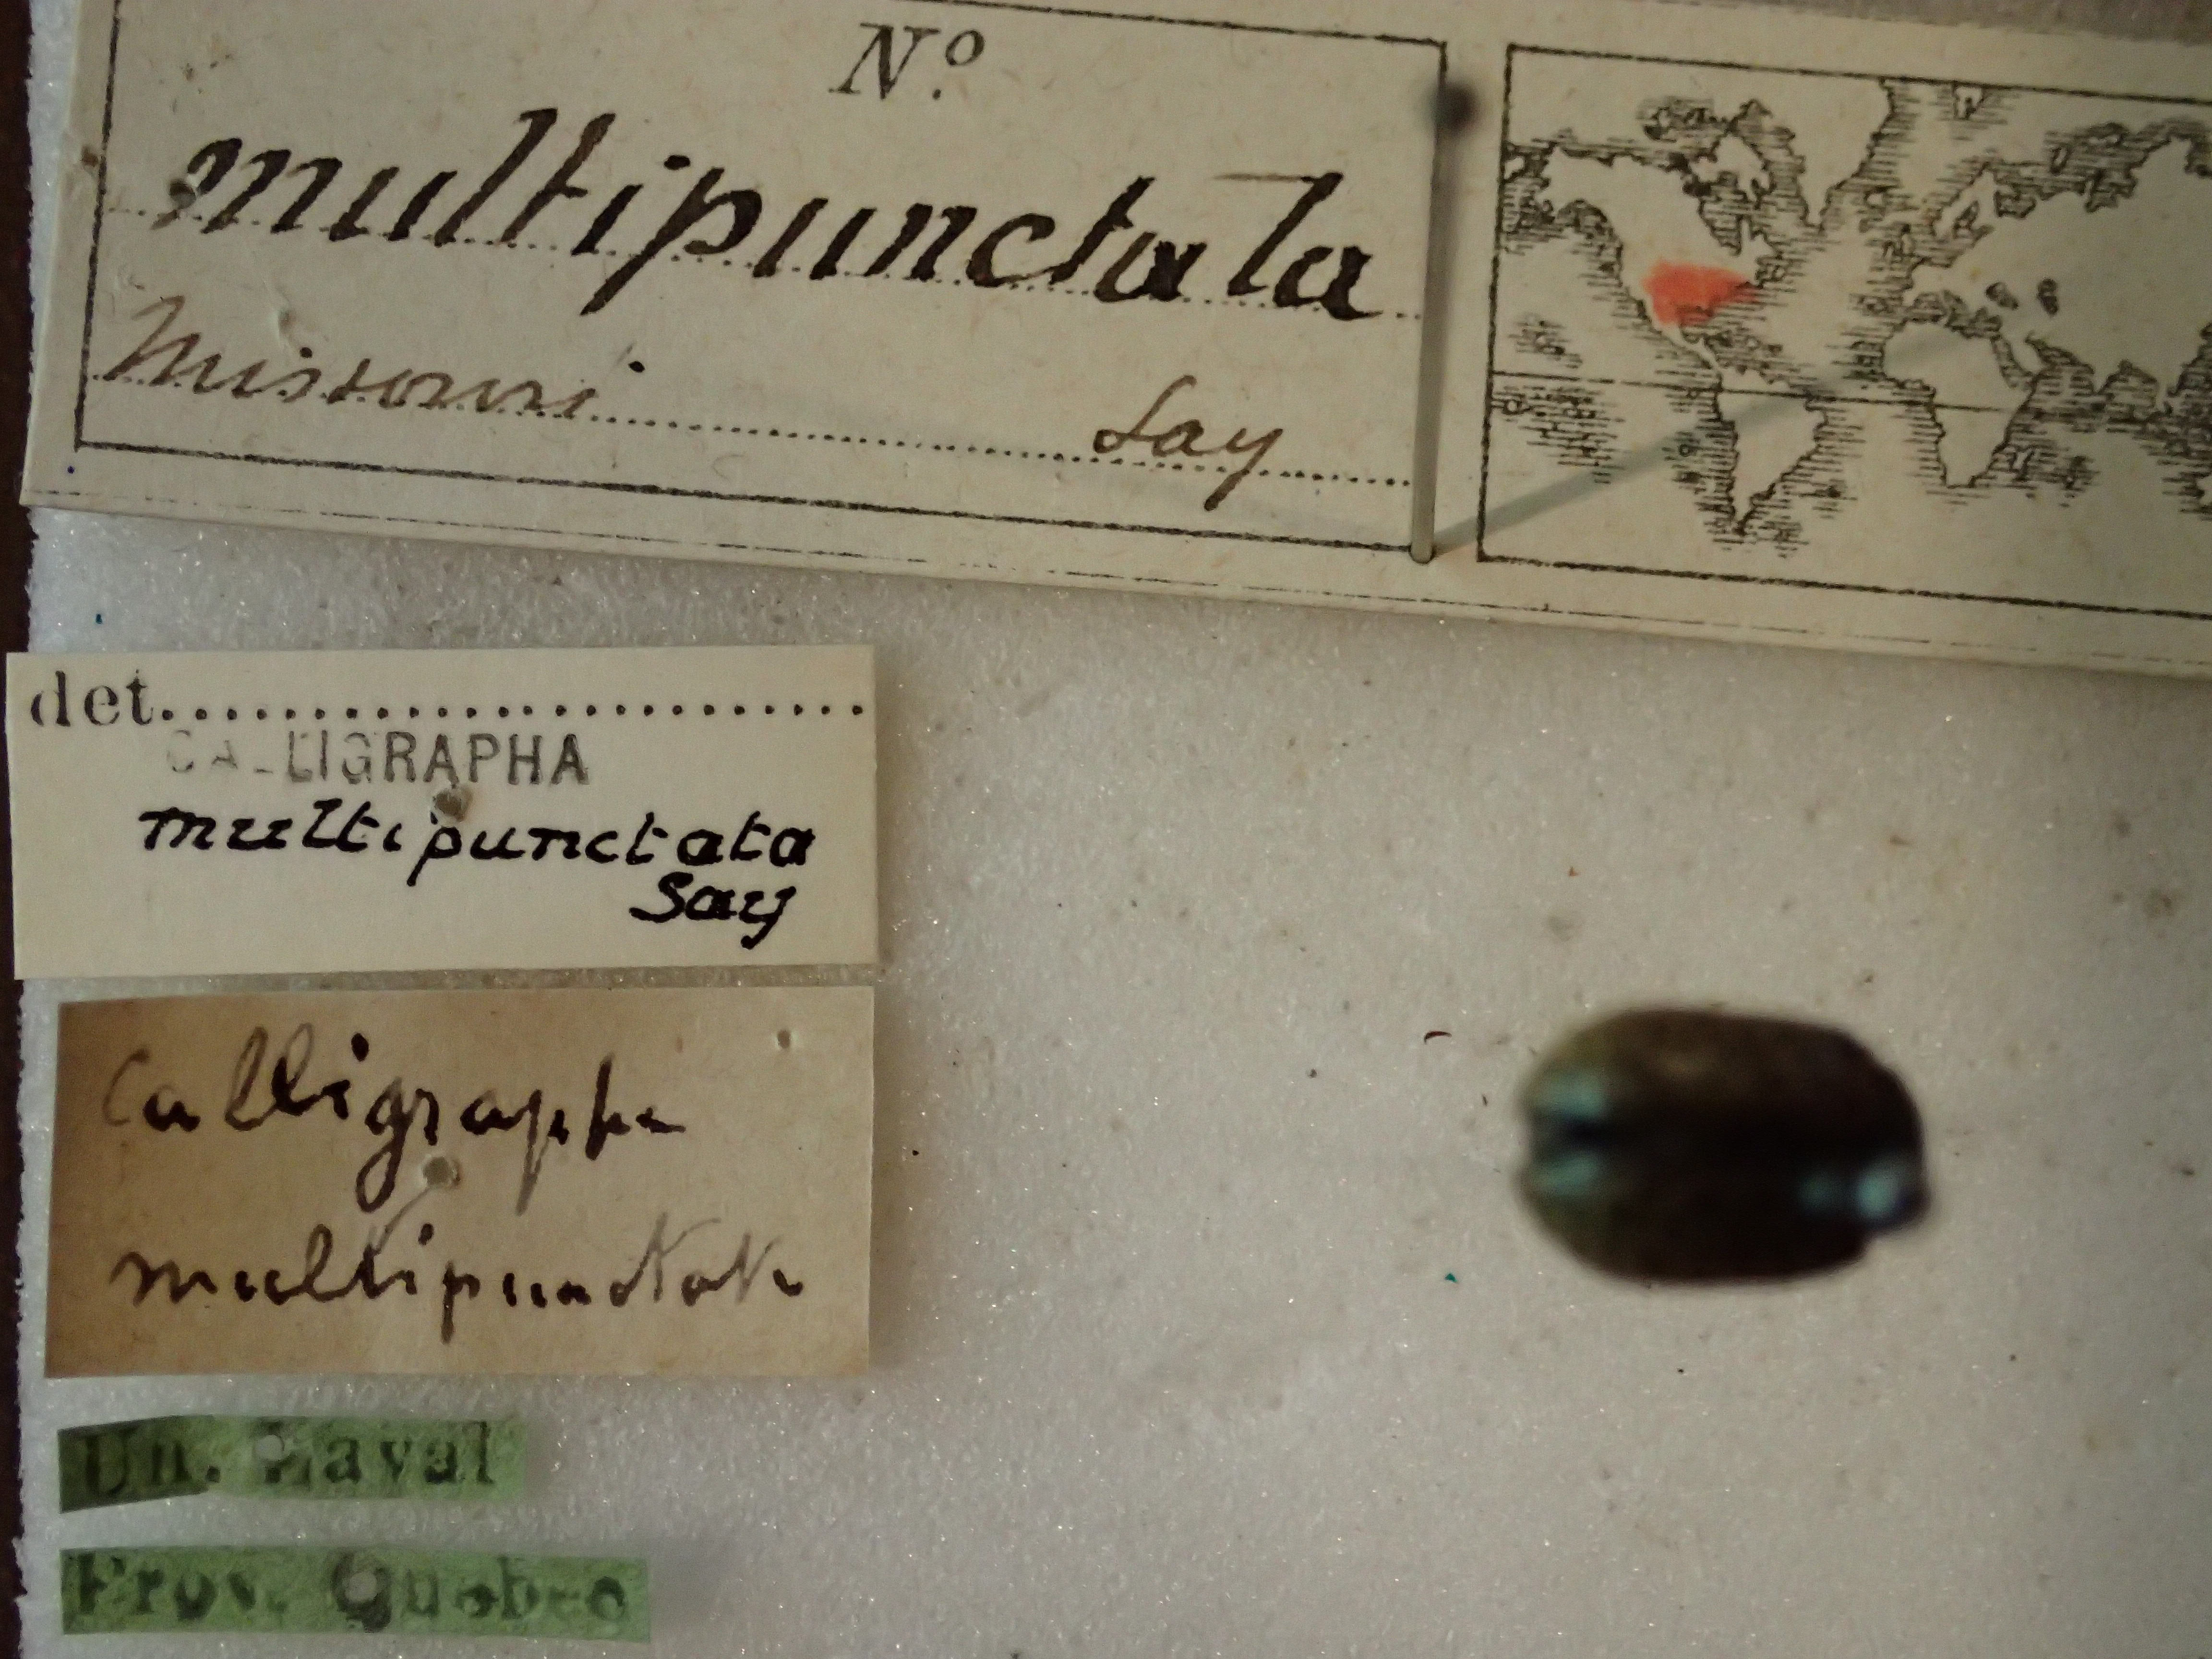 Nº
multipunctata
Missouri Say
det...........................
CALLIGRAPHA
multipunctata
Say
Calligrapha
multipunctata
Un. Laval
Prov. Quebec